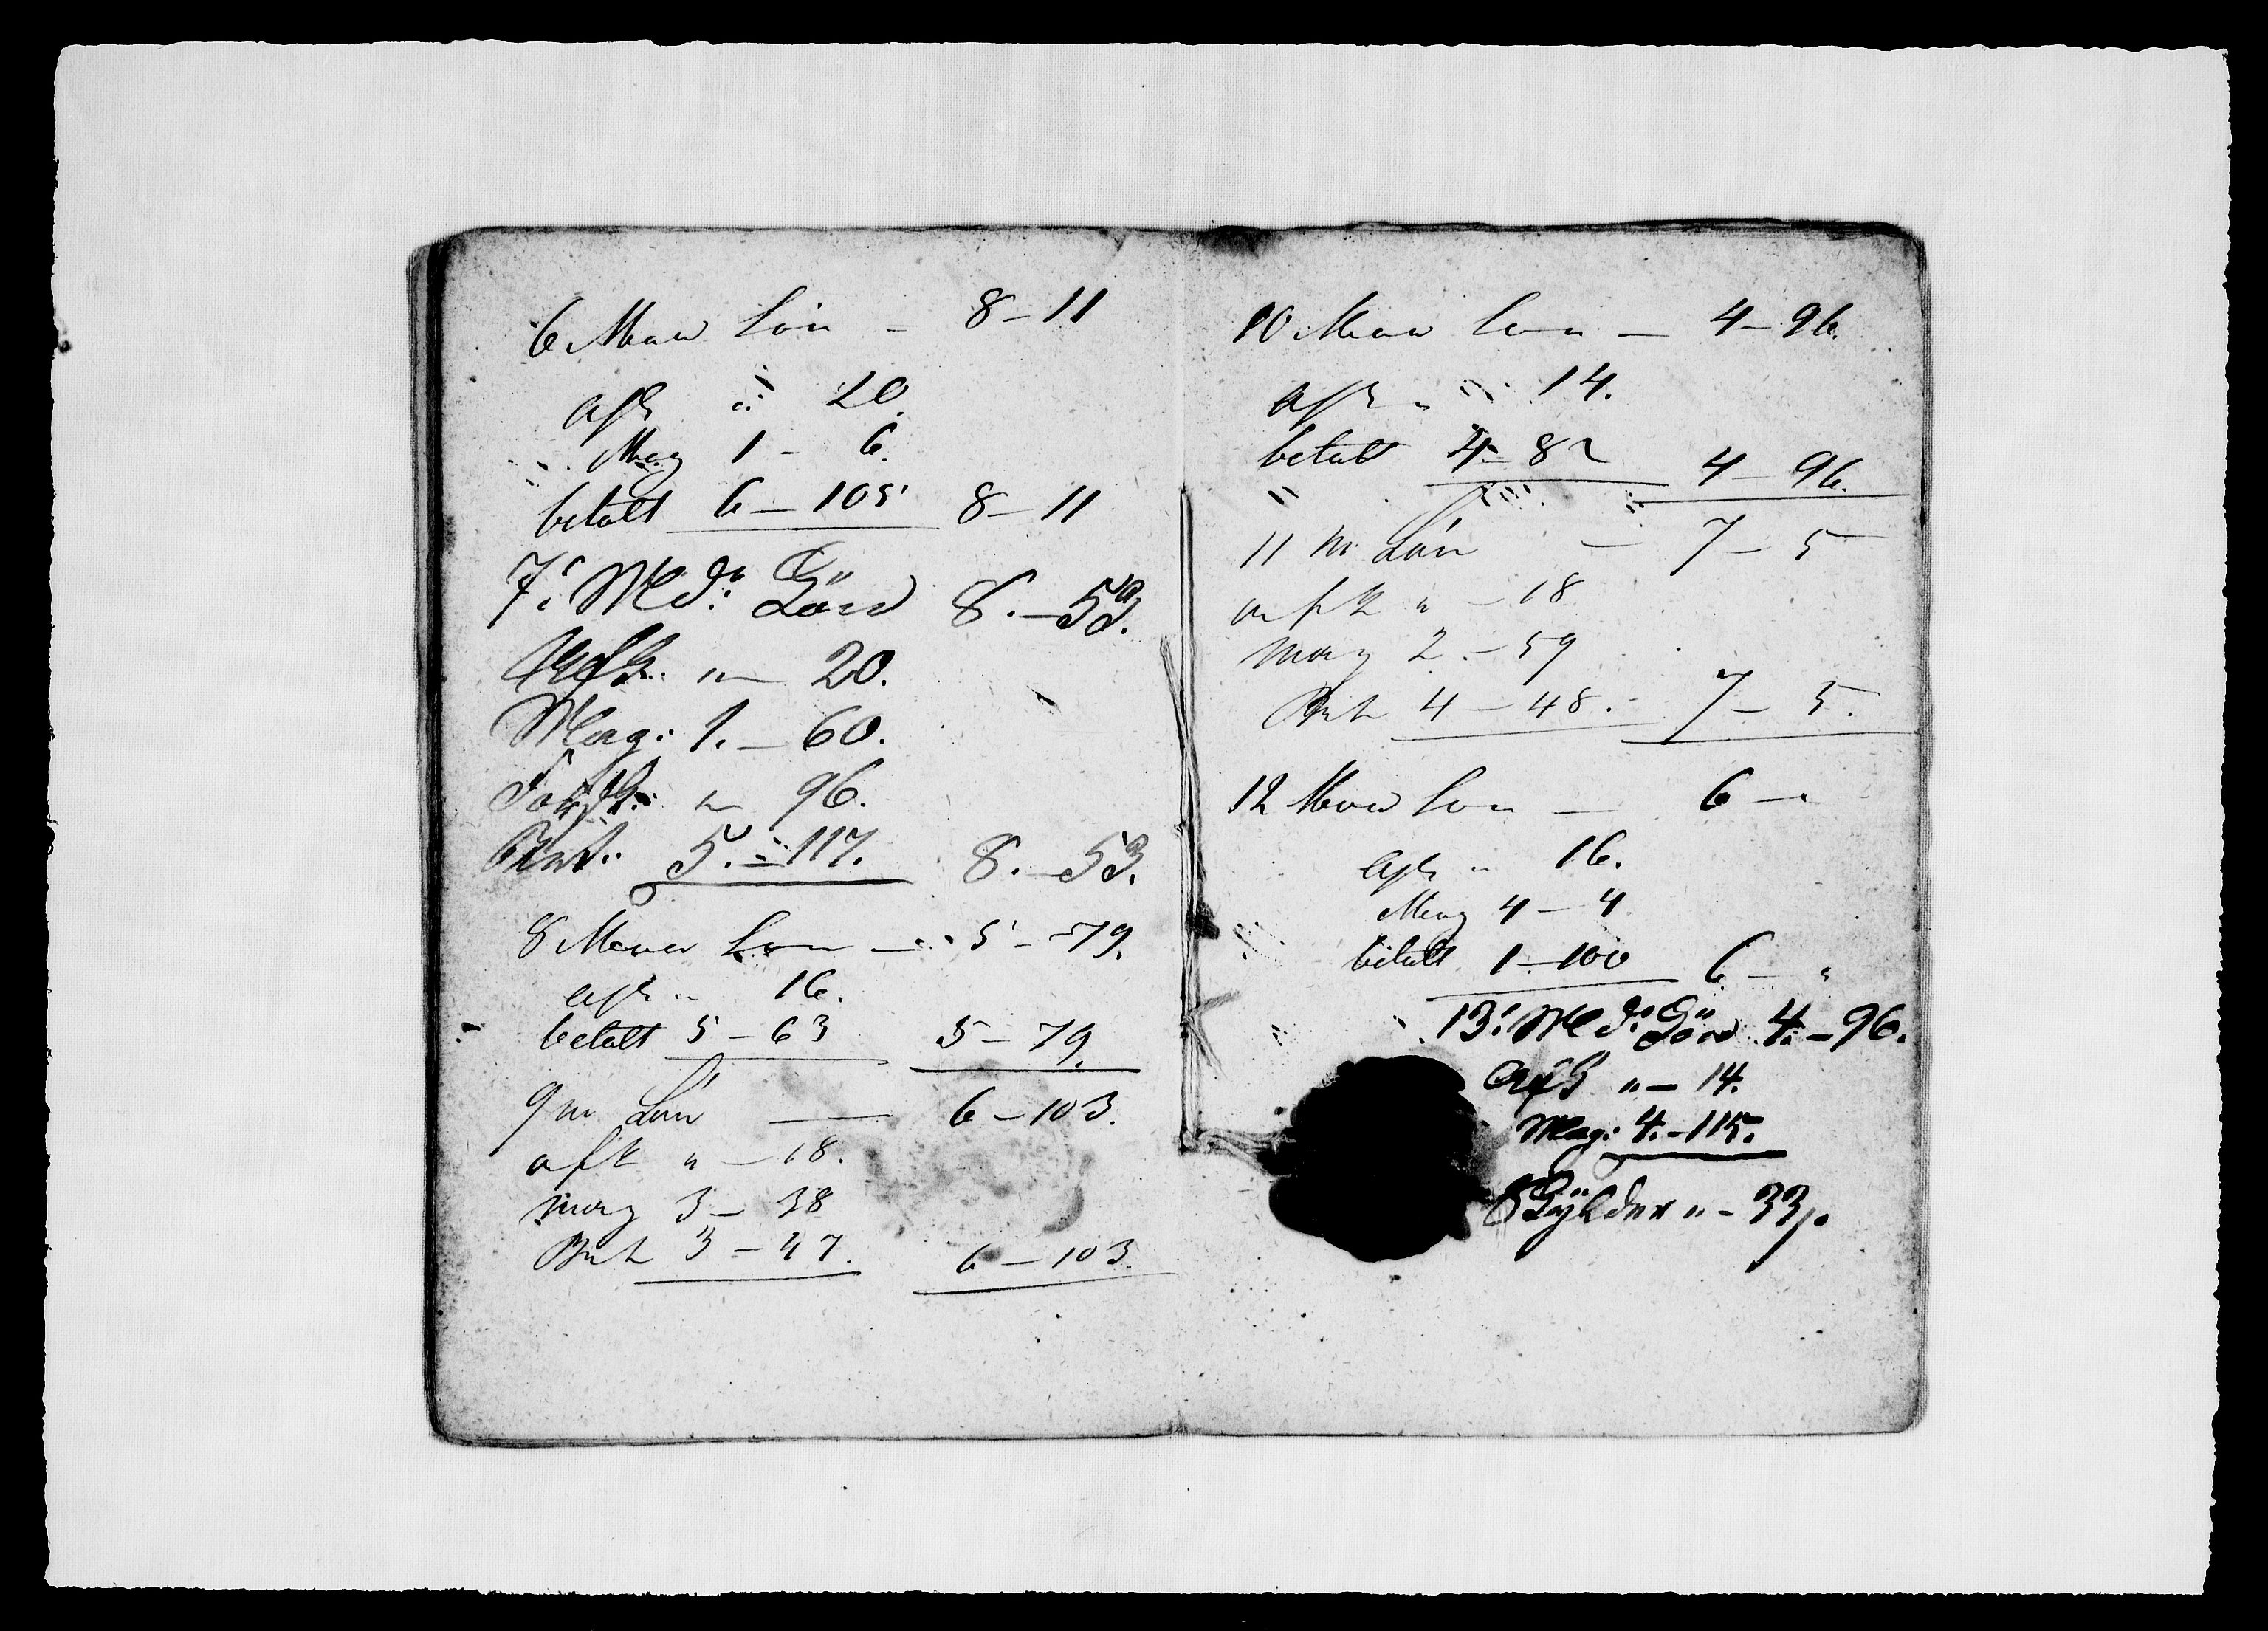 6 Maan Lön - 8 - 11
afk " 20.
Mag 1 - 6.
betalt 6 - 105 8 - 11
7: Md: Lön 8. - 53.
Afk. " - 20.
Mag: 1. - 60.
" 96.
5. - 117. 8. - 53.
8 Maan Lon - 5 - 79.
afk " 16.
betalt 5 - 63 5 - 79.
9 m Lön - 6 - 103.
afk " - 18.
mag 3 - 38
3 - 47. 6 - 103.
10 Maan Lon - 4 - 96.
afk " 14.
betalt 4 - 82 4 - 96.
11 m Lön - 7 - 5
afk " - 18
mag 2 - 59
4 - 48. - 7 - 5.
12 Maan Lon - 6 - "
afk " 16.
Mag 4 - 4
betalt 1 - 100 6 - "
13: Md: Lön 4. - 96.
Afk " - 14.
Mag: 4. - 115.
Skylder " - 33